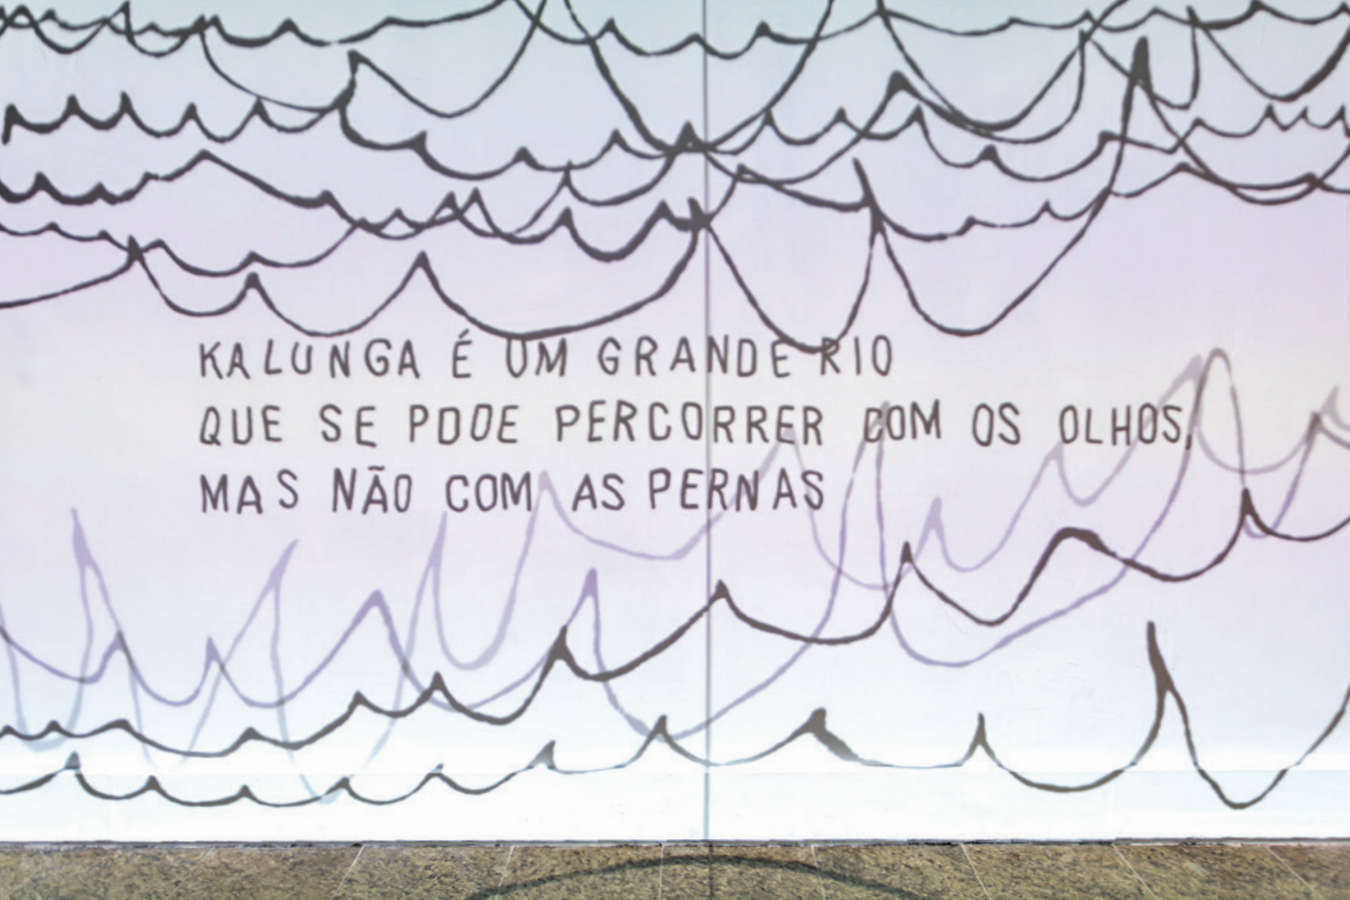 KALUNGA É UM GRANDE RIO
QUE SE PODE PERCORRER COM OS OLHOS,
MAS NÃO COM AS PERNAS